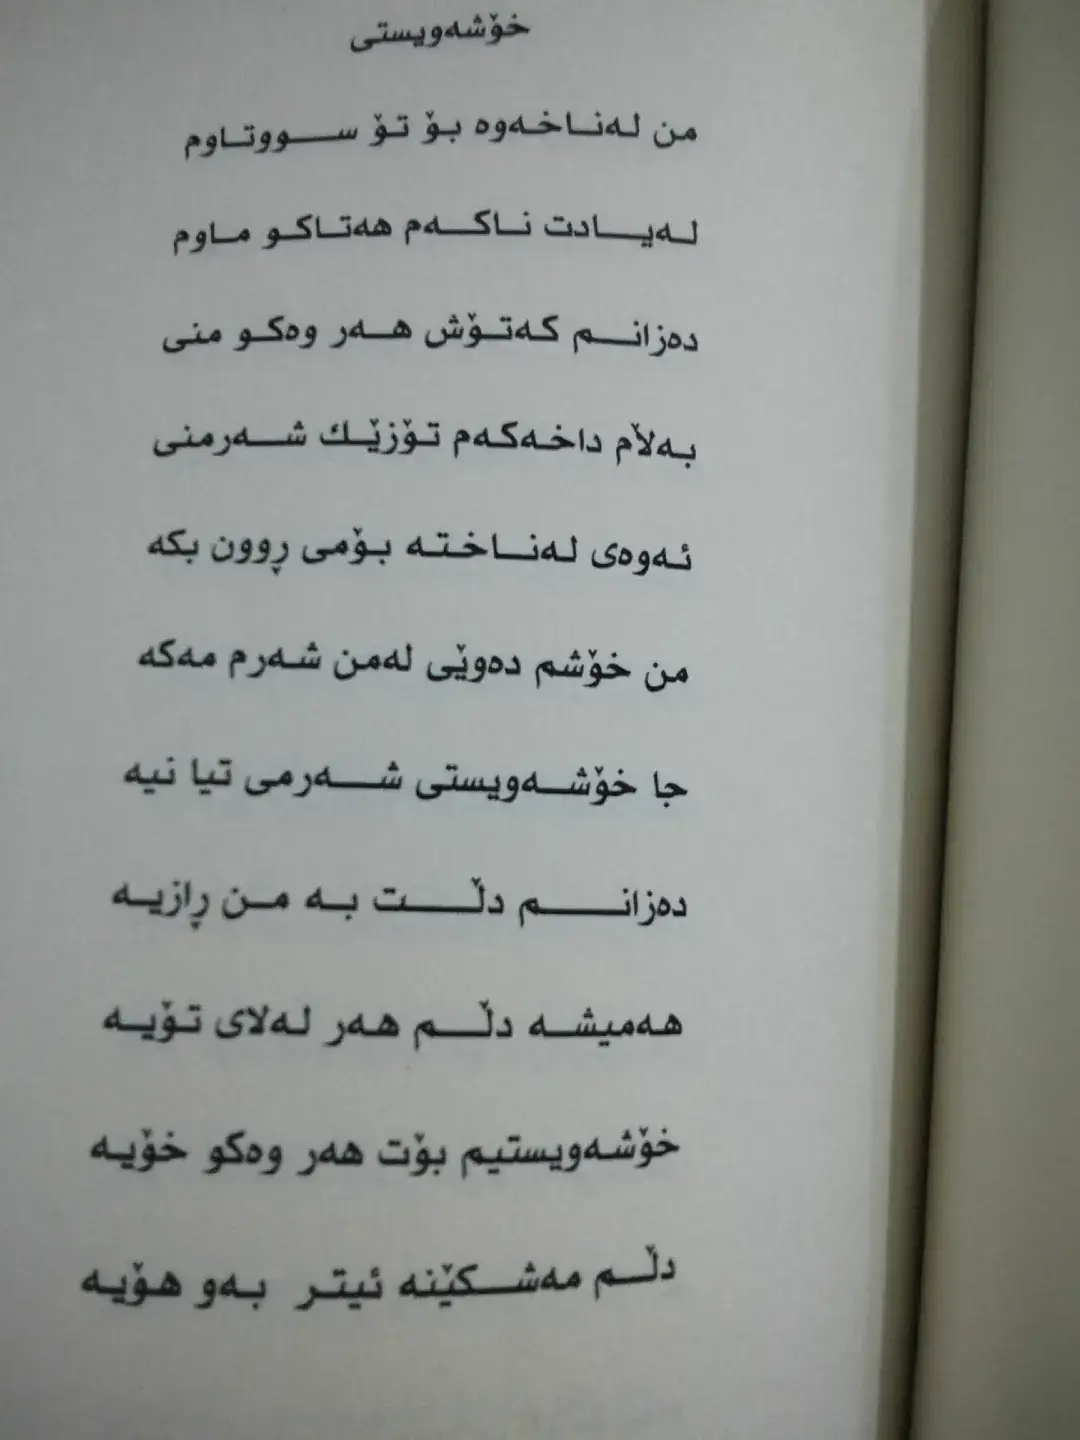 خۆشەویستی
من لەناخەوە بۆ تۆ سووتاوم
لەیادت ناکەم هەتاکو ماوم
دەزانم کەتۆش هەر وەکو منی
بەڵام داخەکەم تۆزێك شەرمنی
ئەوەی لەناختە بۆمی ڕوون بکە
من خۆشم دەوێی لەمن شەرم مەکە
جا خۆشەویستی شەرمی تیا نیە
دەزانم دڵت بە من ڕازیە
هەمیشە دڵم هەر لەلای تۆیە
خۆشەویستیم بۆت هەر وەکو خۆیە
دڵم مەشکێنە ئیتر بەو هۆیە